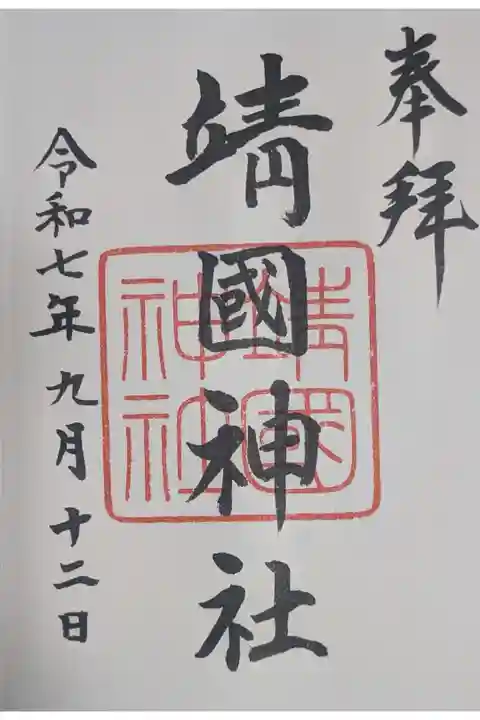 奉拝
靖國神社
靖國
神社
令和七年九月十二日